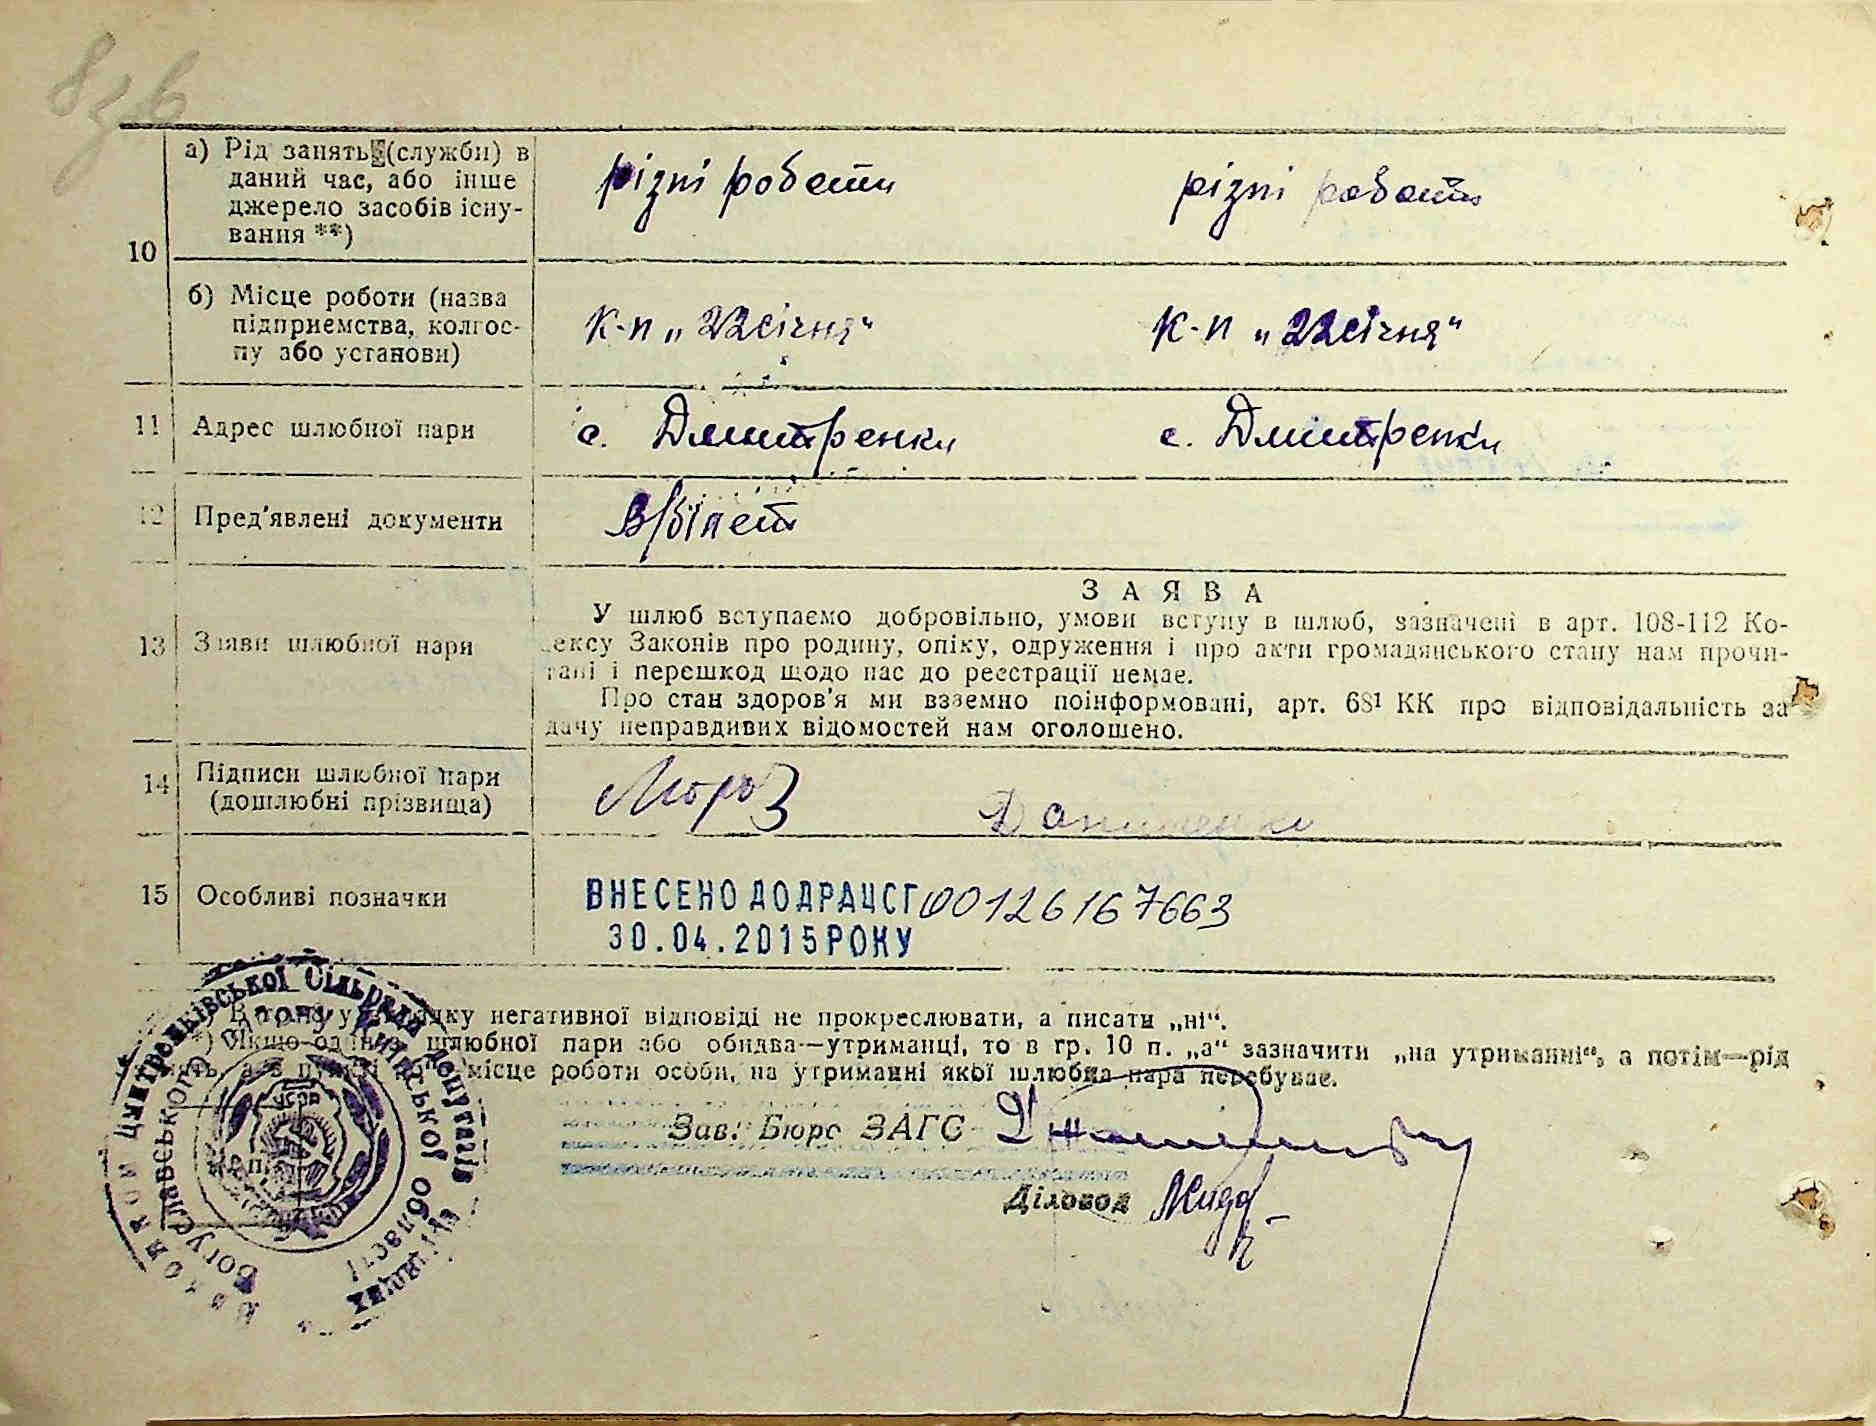 10
а) Рід занять (служби) в
даний час, або інше
джерело засобів існу-
вання **)
різні роботи
різні роботи
б) Місце роботи (назва
підприємства, колгос-
пу або установи)
к-п „22 січня“
к-п „22 січня“
11 Адрес шлюбної пари
с. Дмитренки
с. Дмитренки
12 Пред'явлені документи
В/білет
13 Заяви шлюбної пари
ЗАЯВА
У шлюб вступаємо добровільно, умови вступу в шлюб, зазначені в арт. 108-112 Ко-
дексу Законів про родину, опіку, одруження і про акти громадянського стану нам прочи-
тані і перешкод щодо нас до реєстрації немає.
Про стан здоров'я ми взаємно поінформовані, арт. 68¹ КК про відповідальність за
дачу неправдивих відомостей нам оголошено.
14 Підписи шлюбної пари
(дошлюбні прізвища)
Мороз
15 Особливі позначки
ВНЕСЕНО ДО ДРАЦСГ 00126167663
30.04.2015 РОКУ
негативної відповіді не прокреслювати, а писати „ні“.
*) Якщо один з шлюбної пари або обидва—утриманці, то в гр. 10 п. „а“ зазначити „на утриманні“, а потім—рід
місце роботи особи, на утриманні якої шлюбна пара перебуває.
Зав. Бюро ЗАГС
Діловод
Дмитренківської Сільради депутатів
Богуславського району Київської області
УСРР